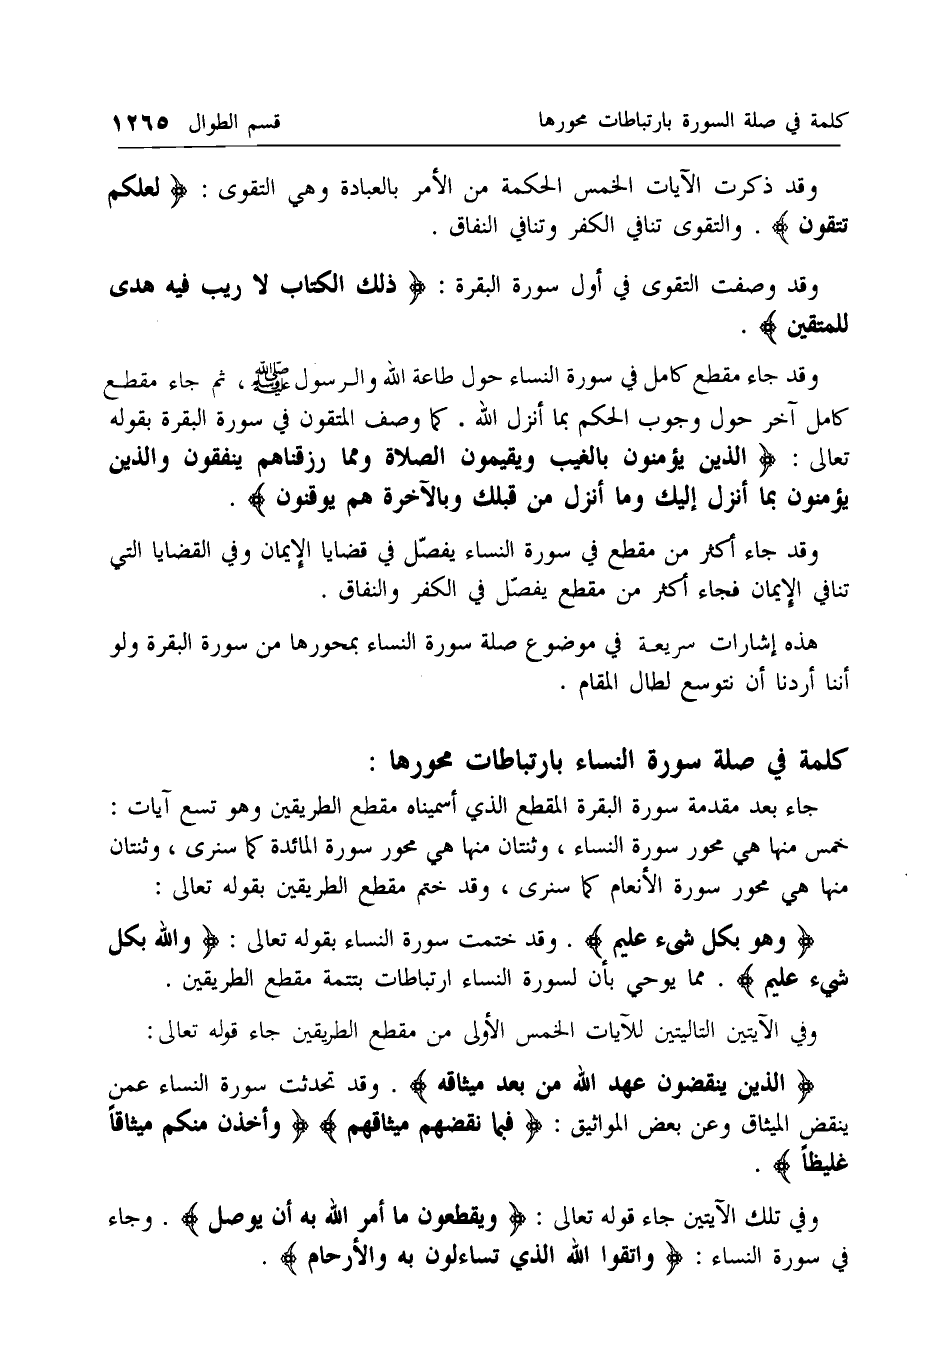 كلمة في صلة السورة بارتباطات محورها قسم الطوال ١٢٦٥
وقد ذكرت الآيات الخمس الحكمة من الأمر بالعبادة وهي التقوى : ﴿ لعلكم
تتقون ﴾ . والتقوى تنافي الكفر وتنافي النفاق .
وقد وصفت التقوى في أول سورة البقرة : ﴿ ذلك الكتاب لا ريب فيه هدى
للمتقين ﴾ .
وقد جاء مقطع كامل في سورة النساء حول طاعة الله والرسول ﷺ ، ثم جاء مقطع
كامل آخر حول وجوب الحكم بما أنزل الله . كما وصف المتقون في سورة البقرة بقوله
تعالى : ﴿ الذين يؤمنون بالغيب ويقيمون الصلاة ومما رزقناهم ينفقون والذين
يؤمنون بما أنزل إليك وما أنزل من قبلك وبالآخرة هم يوقنون ﴾ .
وقد جاء أكثر من مقطع في سورة النساء يفصّل في قضايا الإيمان وفي القضايا التي
تنافي الإيمان فجاء أكثر من مقطع يفصّل في الكفر والنفاق .
هذه إشارات سريعة في موضوع صلة سورة النساء بمحورها من سورة البقرة ولو
أننا أردنا أن نتوسع لطال المقام .
كلمة في صلة سورة النساء بارتباطات محورها :
جاء بعد مقدمة سورة البقرة المقطع الذي أسميناه مقطع الطريقين وهو تسع آيات :
خمس منها هي محور سورة النساء ، وثنتان منها هي محور سورة المائدة كما سنرى ، وثنتان
منها هي محور سورة الأنعام كما سنرى ، وقد ختم مقطع الطريقين بقوله تعالى :
﴿ وهو بكل شيء عليم ﴾ . وقد ختمت سورة النساء بقوله تعالى : ﴿ والله بكل
شيء عليم ﴾ . مما يوحي بأن لسورة النساء ارتباطات بتتمة مقطع الطريقين .
وفي الآيتين التاليتين للآيات الخمس الأولى من مقطع الطريقين جاء قوله تعالى :
﴿ الذين ينقضون عهد الله من بعد ميثاقه ﴾ . وقد تحدثت سورة النساء عمن
ينقض الميثاق وعن بعض المواثيق : ﴿ فبما نقضهم ميثاقهم ﴾ ﴿ وأخذن منكم ميثاقاً
غليظاً ﴾ .
وفي تلك الآيتين جاء قوله تعالى : ﴿ ويقطعون ما أمر الله به أن يوصل ﴾ . وجاء
في سورة النساء : ﴿ واتقوا الله الذي تساءلون به والأرحام ﴾ .